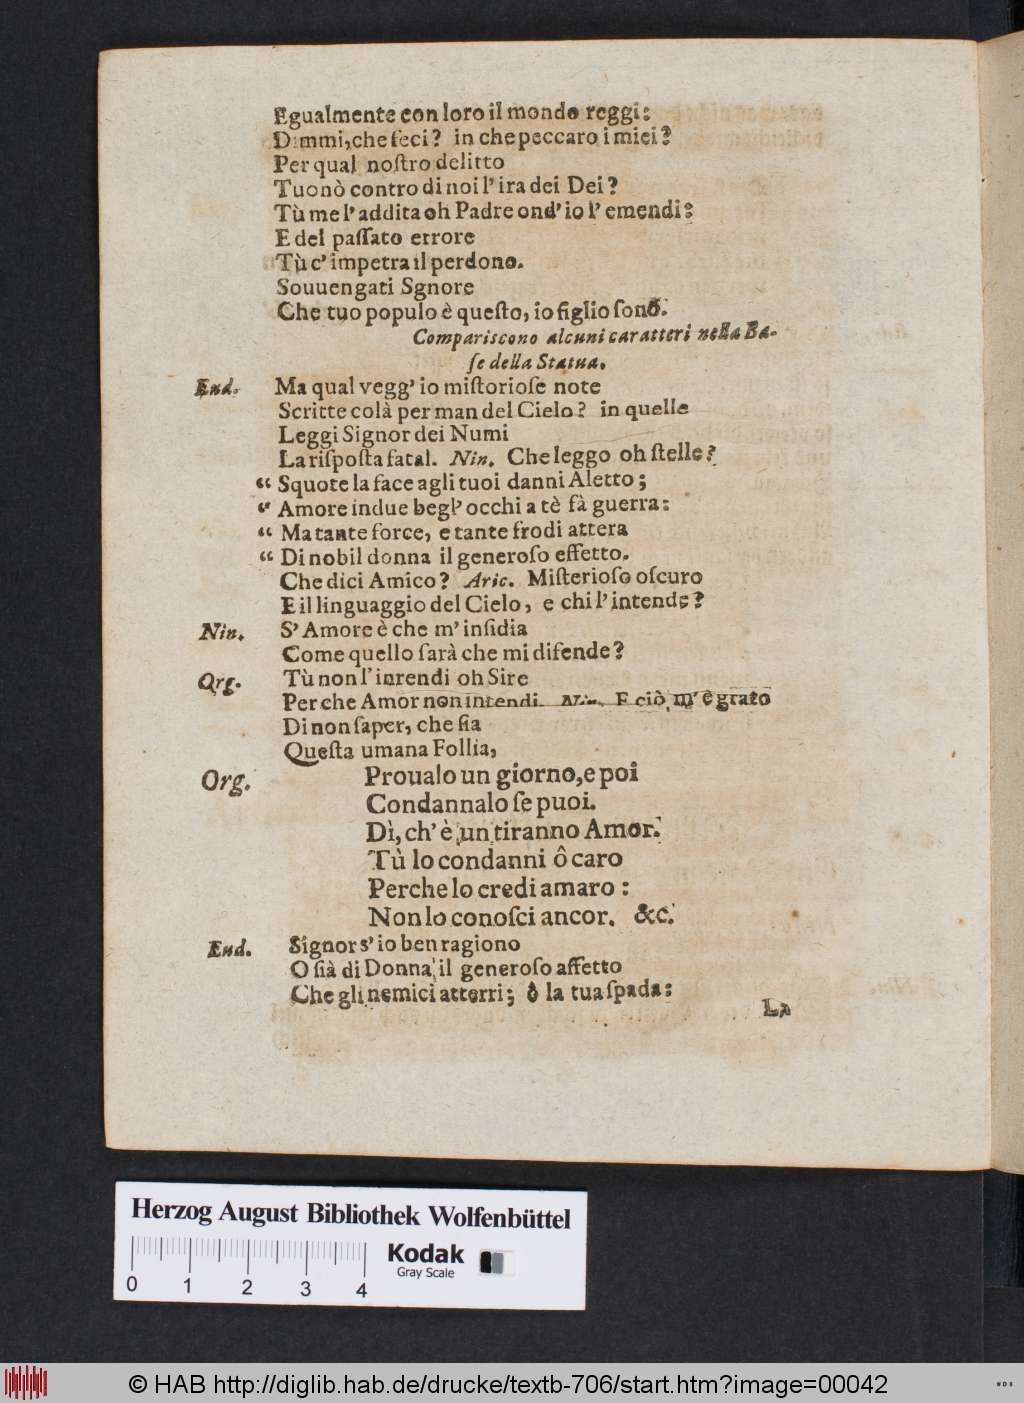 Egualmente con loro il mondo reggi:
Dimmi, che feci? in che peccaro i miei?
Per qual noſtro delitto
Tuonò contro di noi l' ira dei Dei?
Tù me l' addita oh Padre ond' io l' emendi:
E del paſſato errore
Tù c' impetra il perdono.
Souuengati Sgnore
Che tuo populo è queſto, io figlio ſono.
Compariscono alcuni caratteri nella Ba-
ſe della Statua.
End. Ma qual vegg' io miſtorioſe note
Scritte colà per man del Cielo? in quelle
Leggi Signor dei Numi
La riſpoſta fatal. Nin. Che leggo oh ſtelle?
“ Squote la face agli tuoi danni Aletto;
“ Amore indue begl' occhi a tè fà guerra:
“ Ma tante force, e tante frodi attera
“ Di nobil donna il generoſo effetto.
Che dici Amico? Aric. Miſterioſo oſcuro
E il linguaggio del Cielo, e chi l' intende?
Nin. S' Amore è che m' inſidia
Come quello ſarà che mi difende?
Org. Tù non l' inrendi oh Sire
Perche Amor non intendi. Nin. E ciò m' è grato
Di non ſaper, che ſia
Queſta umana Follia,
Org. Proualo un giorno, e poi
Condannalo ſe puoi.
Dì, ch' è un tiranno Amor.
Tù lo condanni ô caro
Perche lo credi amaro:
Non lo conoſci ancor. &c.
End. Signor s' io ben ragiono
O ſià di Donna il generoſo affetto
Che gli nemici atterri; ô la tua ſpada:
La
Herzog August Bibliothek Wolfenbüttel
0 1 2 3 4
Kodak
Gray Scale
© HAB http://diglib.hab.de/drucke/textb-706/start.htm?image=00042